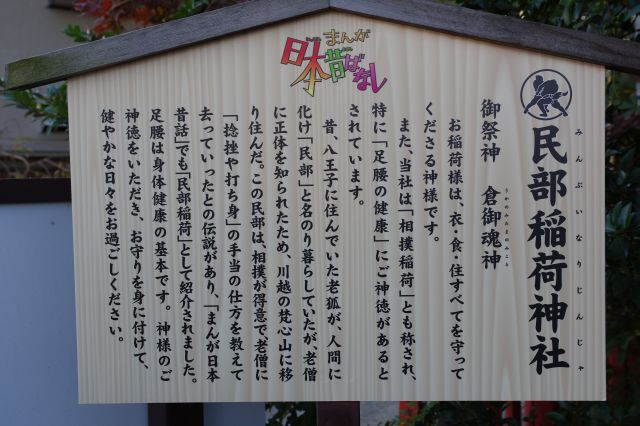 民部稲荷神社
みんぶいなりじんじゃ
御祭神　倉御魂神
うかのみたまのみこと
お稲荷様は、衣・食・住すべてを守って
くださる神様です。
また、当社は「相撲稲荷」とも称され、
特に「足腰の健康」にご神徳があると
されています。
昔、八王子に住んでいた老狐が、人間に
化け「民部」と名のり暮らしていたが、老僧
に正体を知られたため、川越の梵心山に移
り住んだ。この民部は、相撲が得意で、老僧に
「捻挫や打ち身」の手当の仕方を教えて
去っていったとの伝説があり、「まんが日本
昔話」でも「民部稲荷」として紹介されました。
足腰は身体健康の基本です。神様のご
神徳をいただき、お守りを身に付けて、
健やかな日々をお過ごしください。
まんが
日本昔ばなし